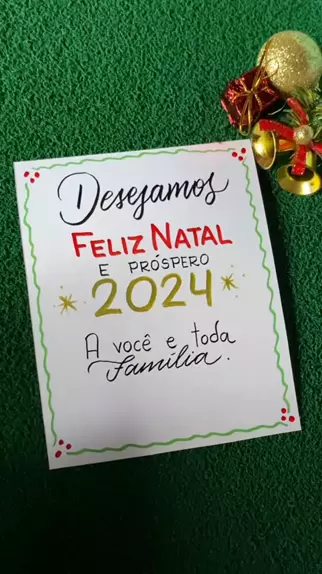 Desejamos
FELIZ NATAL
E PRÓSPERO
2024
A você e toda
Família.